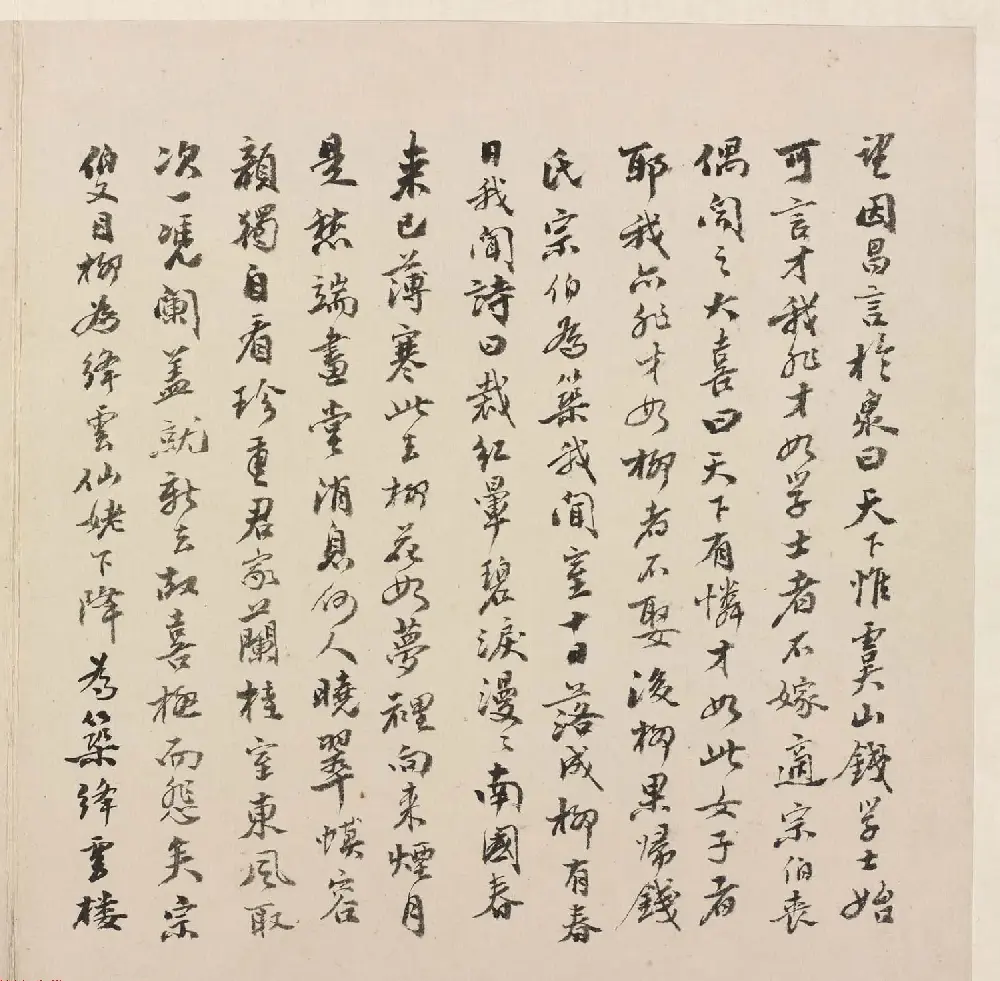 望因昌言於衆曰天下惟虞山錢学士始
可言才我非才如学士者不嫁適宗伯喪
偶闻之大喜曰天下有憐才如此女子者
耶我亦非才如柳者不娶後柳果歸錢
氏宗伯為築我聞室十日落成柳有春
日我聞詩曰裁紅暈碧淚漫〻南國春
来已薄寒此去柳花如夢裡向来煙月
是愁端畫堂消息何人曉翠幙容
顏獨自看珍重君家蘭桂室東風取
次一凭闌盖就新去故喜極而怨矣宗
伯又目柳為絳雲仙姥下降為築絳雲楼